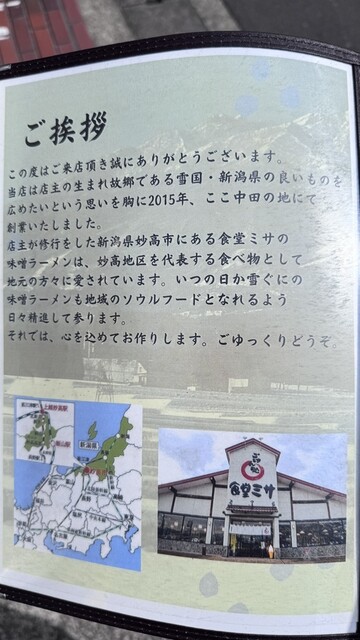 ご挨拶
この度はご来店頂き誠にありがとうございます。
当店は店主の生まれ故郷である雪国・新潟県の良いものを
広めたいという思いを胸に2015年、ここ中田の地にて
創業いたしました。
店主が修行をした新潟県妙高市にある食堂ミサの
味噌ラーメンは、妙高地区を代表する食べ物として
地元の方々に愛されています。いつの日か雪ぐにの
味噌ラーメンも地域のソウルフードとなれるよう
日々精進して参ります。
それでは、心を込めてお作りします。ごゆっくりどうぞ。
上越妙高駅
新潟県
食堂ミサ